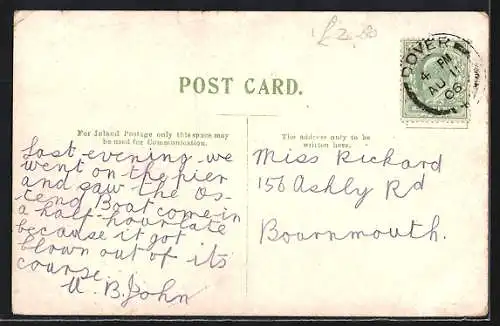 £2.80
DOVER
4 PM
AU 11
06
POST CARD.
For Inland Postage only this space may
be used for Communication.
The address only to be
written here.
Last evening we
went on the pier
and saw the Os-
tend Boat come in
a half-hour late
because it got
blown out of its
course.
U. B. John
Miss Rickard
156 Ashly Rd
Bournmouth.